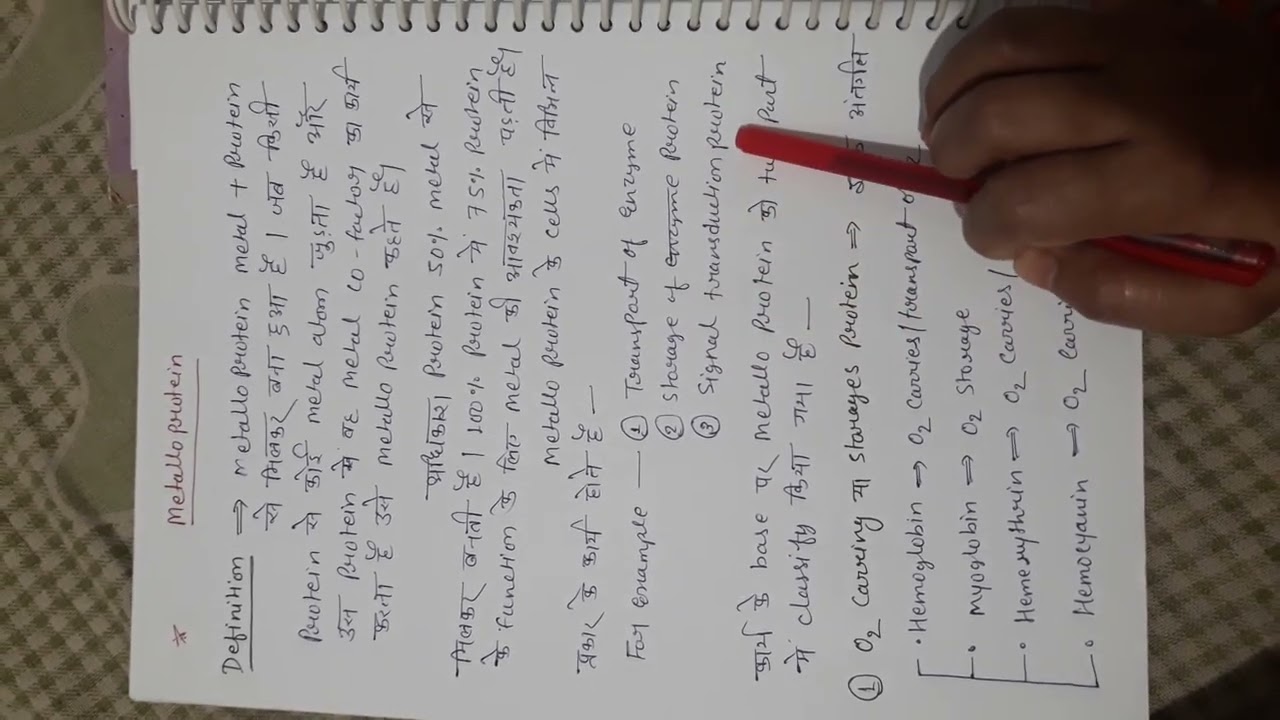 * Metalloprotein
Definition ⇒ metalloprotein metal + protein
से मिलकर बना हुआ है। जब किसी
protein से कोई metal atom जुड़ता है और
उस protein में वह metal co-factor का कार्य
करता है उसे metalloprotein कहते है।
अधिकांश protein 50% metal से
मिलकर बनती है। 100% protein में 75% protein
के function के लिए metal की आवश्यकता पड़ती है।
metalloprotein के cells में विभिन्न
प्रकार के कार्य होते है —
For example — ① Transport of enzyme
② Storage of enzyme protein
③ Signal transduction protein
कार्य के base पर metalloprotein को part
में classify किया गया है —
① O₂ Carring या storages protein ⇒ अंतर्गत
• Hemoglobin → O₂ Carries / transport of
• Myoglobin ⇒ O₂ Storage
• Hemerythrin ⇒ O₂ Carries /
• Hemocyanin → O₂